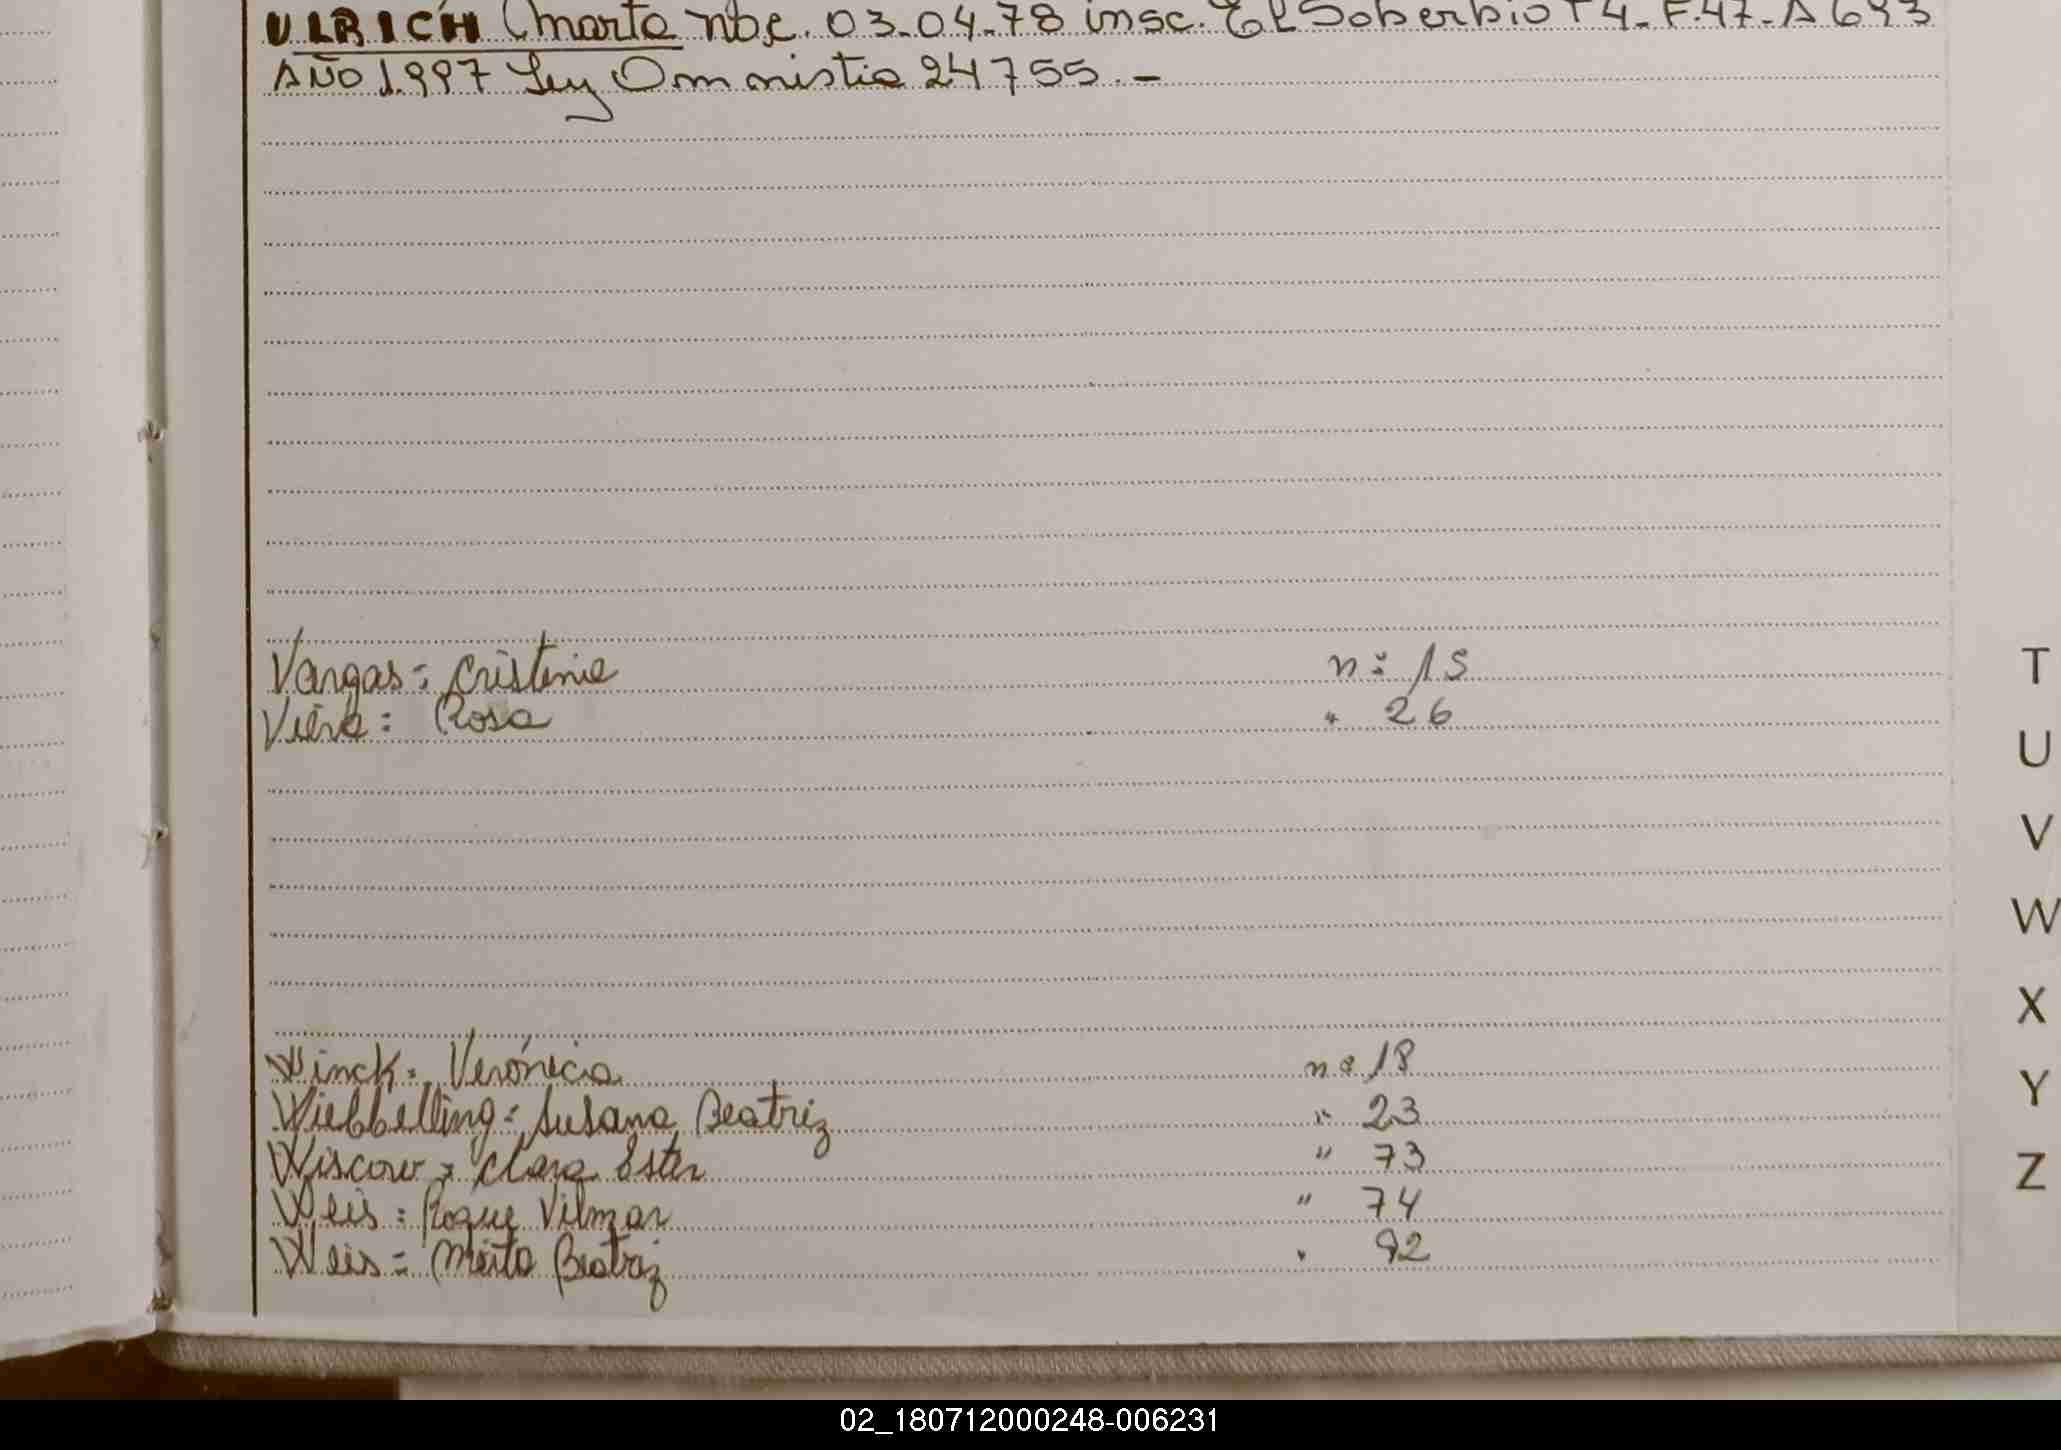 ULRICH (Marta nbe. 03-04-78 insc. El Soberbio T 4- F.47-A 693
AÑO 1997 Ley Omnistia 24755.-
Vargas: Cristina nº 15
Viera: Rosa " 26
Winck: Verónica nº 18
Wiebbelling: Susana Beatriz " 23
Wiscow: Clara Ester " 73
Weis: Roque Vilmar " 74
Weis: Meita Beatriz " 92
T
U
V
W
X
Y
Z
02_180712000248-006231